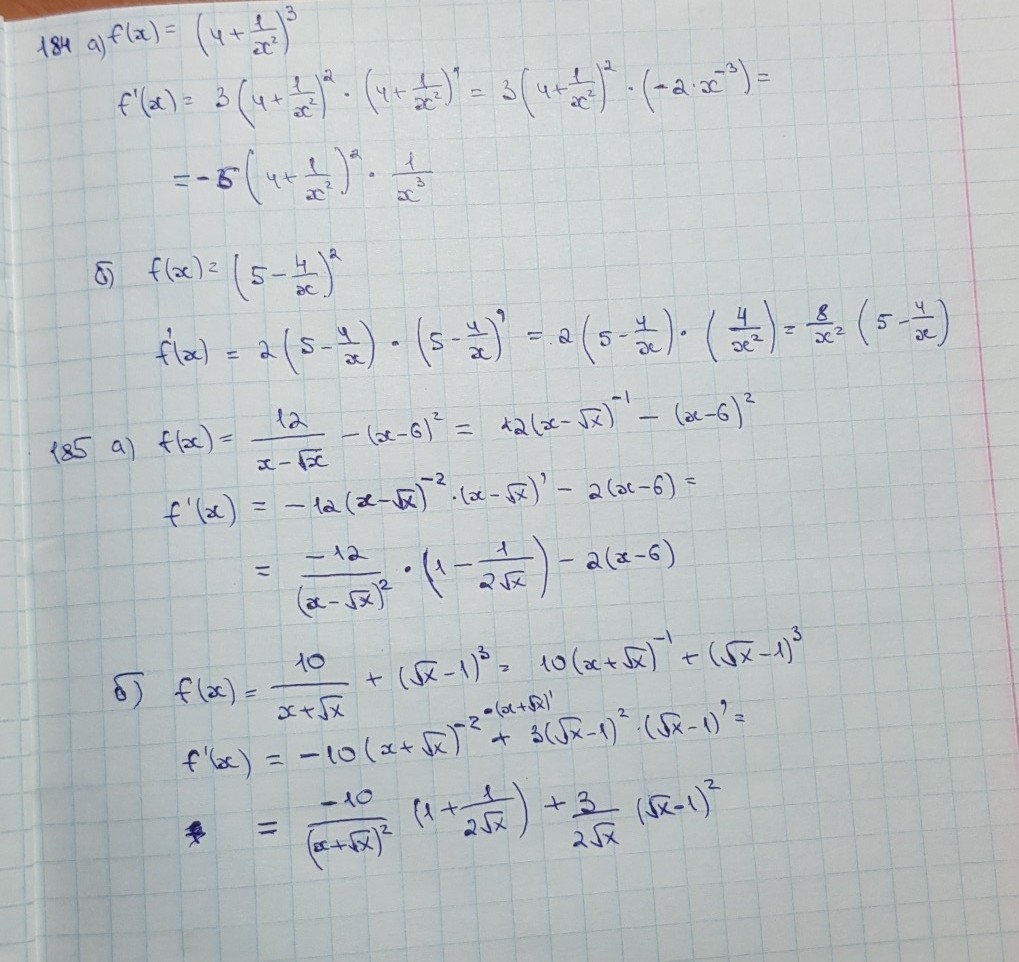 184 а) f(x) = (4 + 1/x²)³
f'(x) = 3(4 + 1/x²)² · (4 + 1/x²)' = 3(4 + 1/x²)² · (-2 · x⁻³) =
= -6(4 + 1/x²)² · 1/x³
б) f(x) = (5 - 4/x)²
f'(x) = 2(5 - 4/x) · (5 - 4/x)' = 2(5 - 4/x) · (4/x²) = 8/x² (5 - 4/x)
185 а) f(x) = 12/(x - √x) - (x-6)² = 12(x - √x)⁻¹ - (x-6)²
f'(x) = -12(x - √x)⁻² · (x - √x)' - 2(x-6) =
= -12/(x - √x)² · (1 - 1/(2√x)) - 2(x-6)
б) f(x) = 10/(x + √x) + (√x - 1)³ = 10(x + √x)⁻¹ + (√x - 1)³
f'(x) = -10(x + √x)⁻² · (x + √x)' + 3(√x - 1)² · (√x - 1)' =
= -10/(x + √x)² (1 + 1/(2√x)) + 3/(2√x) (√x - 1)²